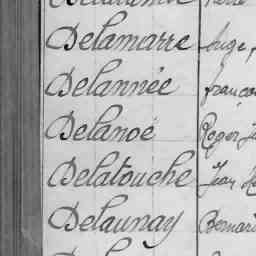 Delamarre
Delannée
Delanoë Roger
Delatouche Jean
Delaunay Bernard